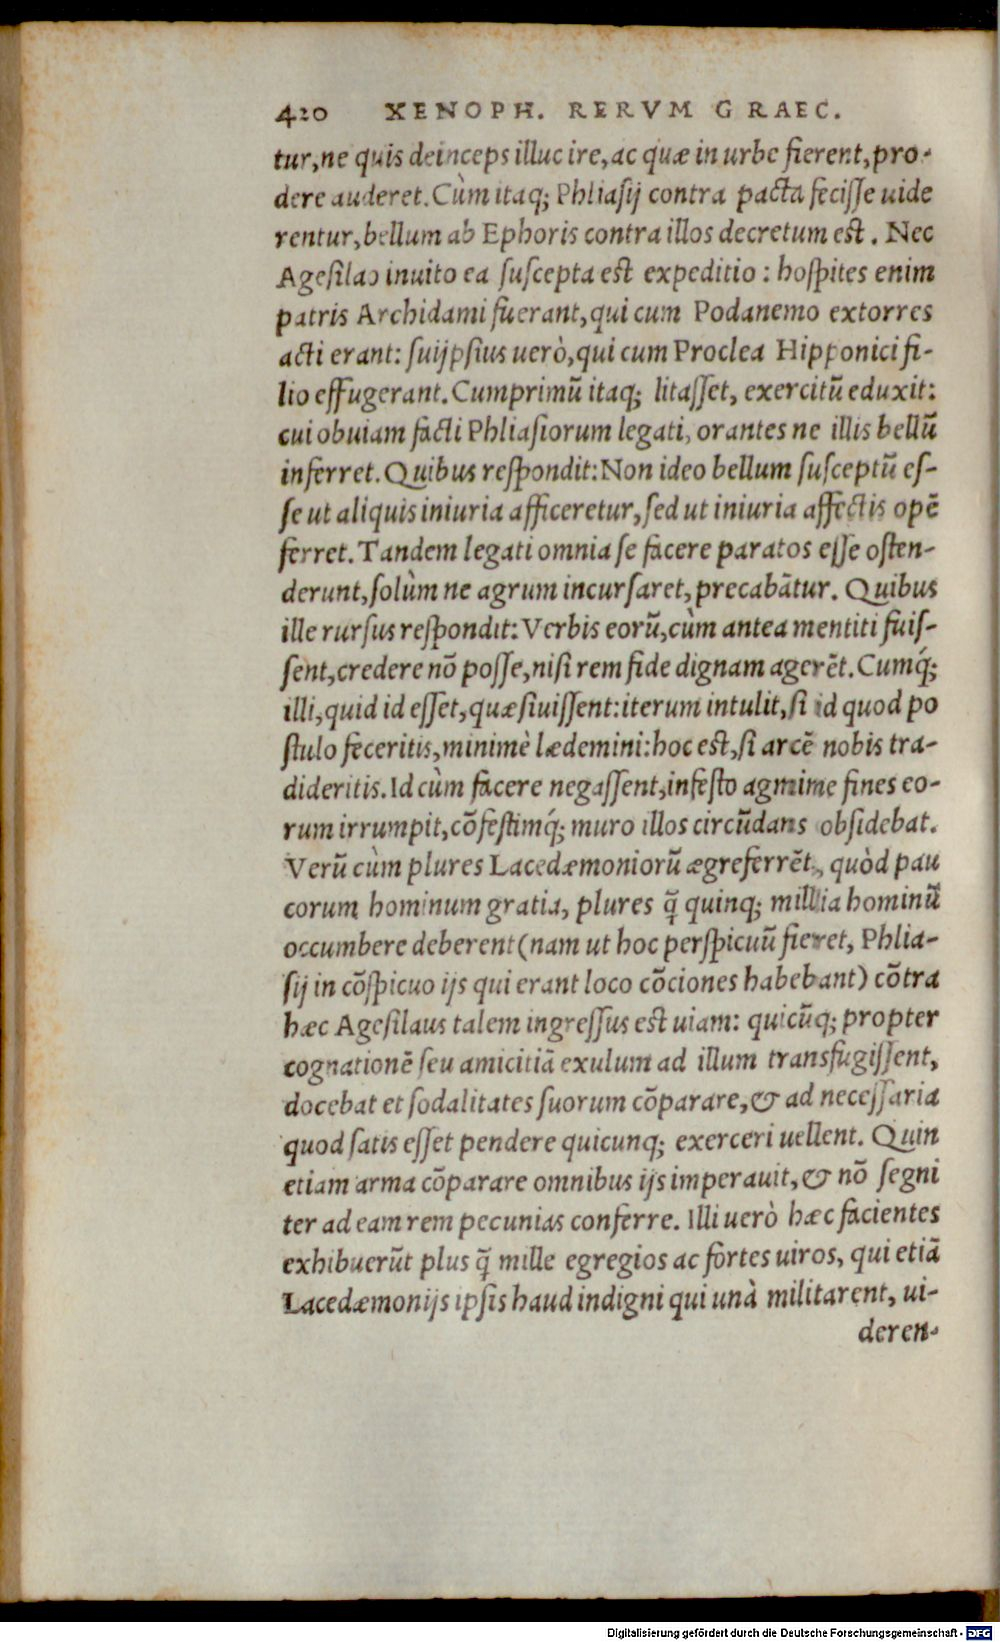 420 XENOPH. RERVM GRAEC.
tur, ne quis deinceps illuc ire, ac quæ in urbe fierent, pro-
dere auderet. Cùm itaq; Phliasij contra pacta fecisse uide
rentur, bellum ab Ephoris contra illos decretum est. Nec
Agesilao inuito ea suscepta est expeditio: hospites enim
patris Archidami fuerant, qui cum Podanemo extorres
acti erant: suijpsius uerò, qui cum Proclea Hipponici fi-
lio effugerant. Cumprimũ itaq; litasset, exercitũ eduxit:
cui obuiam facti Phliasiorum legati, orantes ne illis bellũ
inferret. Quibus respondit: Non ideo bellum susceptũ es-
se ut aliquis iniuria afficeretur, sed ut iniuria affectis opẽ
ferret. Tandem legati omnia se facere paratos esse osten-
derunt, solùm ne agrum incursaret, precabãtur. Quibus
ille rursus respondit: Verbis eorũ, cùm antea mentiti fuis-
sent, credere nõ posse, nisi rem fide dignam agerẽt. Cumq́;
illi, quid id esset, quæsiuissent: iterum intulit, si id quod po
stulo feceritis, minimè lædemini: hoc est, si arcẽ nobis tra-
dideritis. Id cùm facere negassent, infesto agmine fines eo-
rum irrumpit, cõfestimq́; muro illos circũdans obsidebat.
Verũ cùm plures Lacedæmoniorũ ægreferrẽt, quòd pau
corum hominum gratia, plures q̃ quinq; millia hominũ
occumbere deberent (nam ut hoc perspicuũ fieret, Phlia-
sij in cõspicuo ijs qui erant loco cõciones habebant) cõtra
hæc Agesilaus talem ingressus est uiam: quicũq; propter
cognationẽ seu amicitiã exulum ad illum transfugissent,
docebat et sodalitates suorum cõparare, & ad necessaria
quod satis esset pendere quicunq; exerceri uellent. Quin
etiam arma cõparare omnibus ijs imperauit, & nõ segni
ter ad eam rem pecunias conferre. Illi uerò hæc facientes
exhibuerũt plus q̃ mille egregios ac fortes uiros, qui etiã
Lacedæmonijs ipsis haud indigni qui unà militarent, ui-
deren-
Digitalisierung gefördert durch die Deutsche Forschungsgemeinschaft - DFG